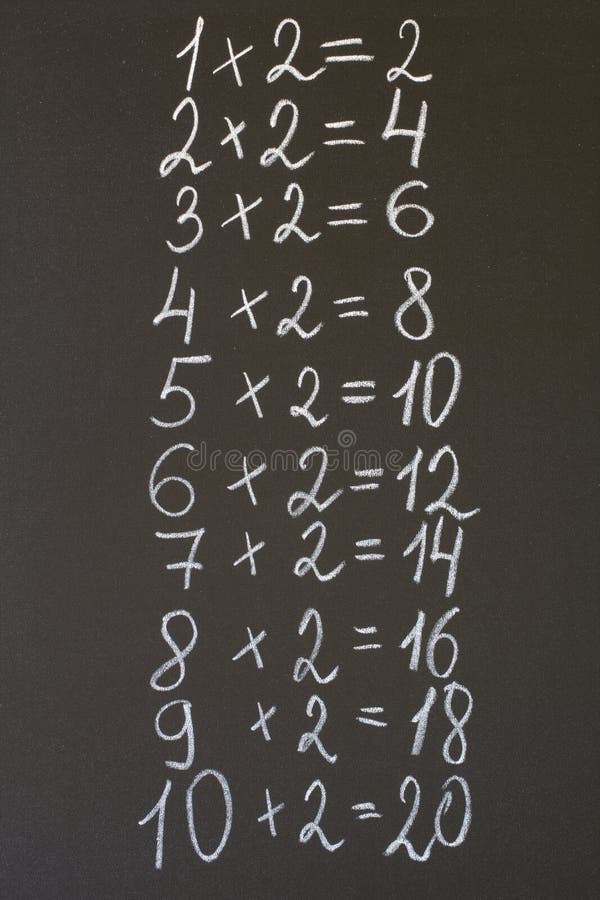 1 × 2 = 2
2 × 2 = 4
3 × 2 = 6
4 × 2 = 8
5 × 2 = 10
6 × 2 = 12
7 × 2 = 14
8 × 2 = 16
9 × 2 = 18
10 × 2 = 20
dreamstime